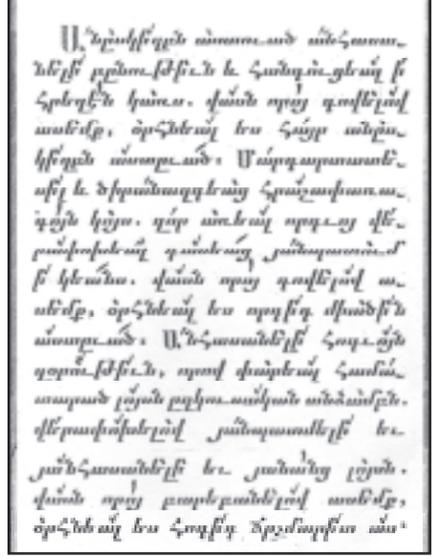 Անըսկիզբըն աստուած անհասա֊
նելի բընութիւն և հանգուցեալ ի
հրեղէն կառս. վասն որոյ գովելով
ասեմք, օրհնեալ ես հայր անըս֊
կիզբըն աստուած։ Մարգարտատե֊
սիլ և ծիրանազգեաց հրաշափառա֊
գոյն կոյս. զոր առեալ որդւոյ վե֊
րափոխեալ
ի կեանս. վասն որոյ գովելով ա֊
սեմք, օրհնեալ ես որդիդ միածին
աստուած։ Անհասանելի հոգւոյն
զօրութիւն, որով փարեալ համա֊
տարած լոյսն անձամբն.
վերափոխելով եւ
յանհասանելի եւ յանանց լոյսն.
վասն որոյ բարեբանելով ասեմք,
օրհնեալ ես հոգիդ ճշմարիտ աս֊